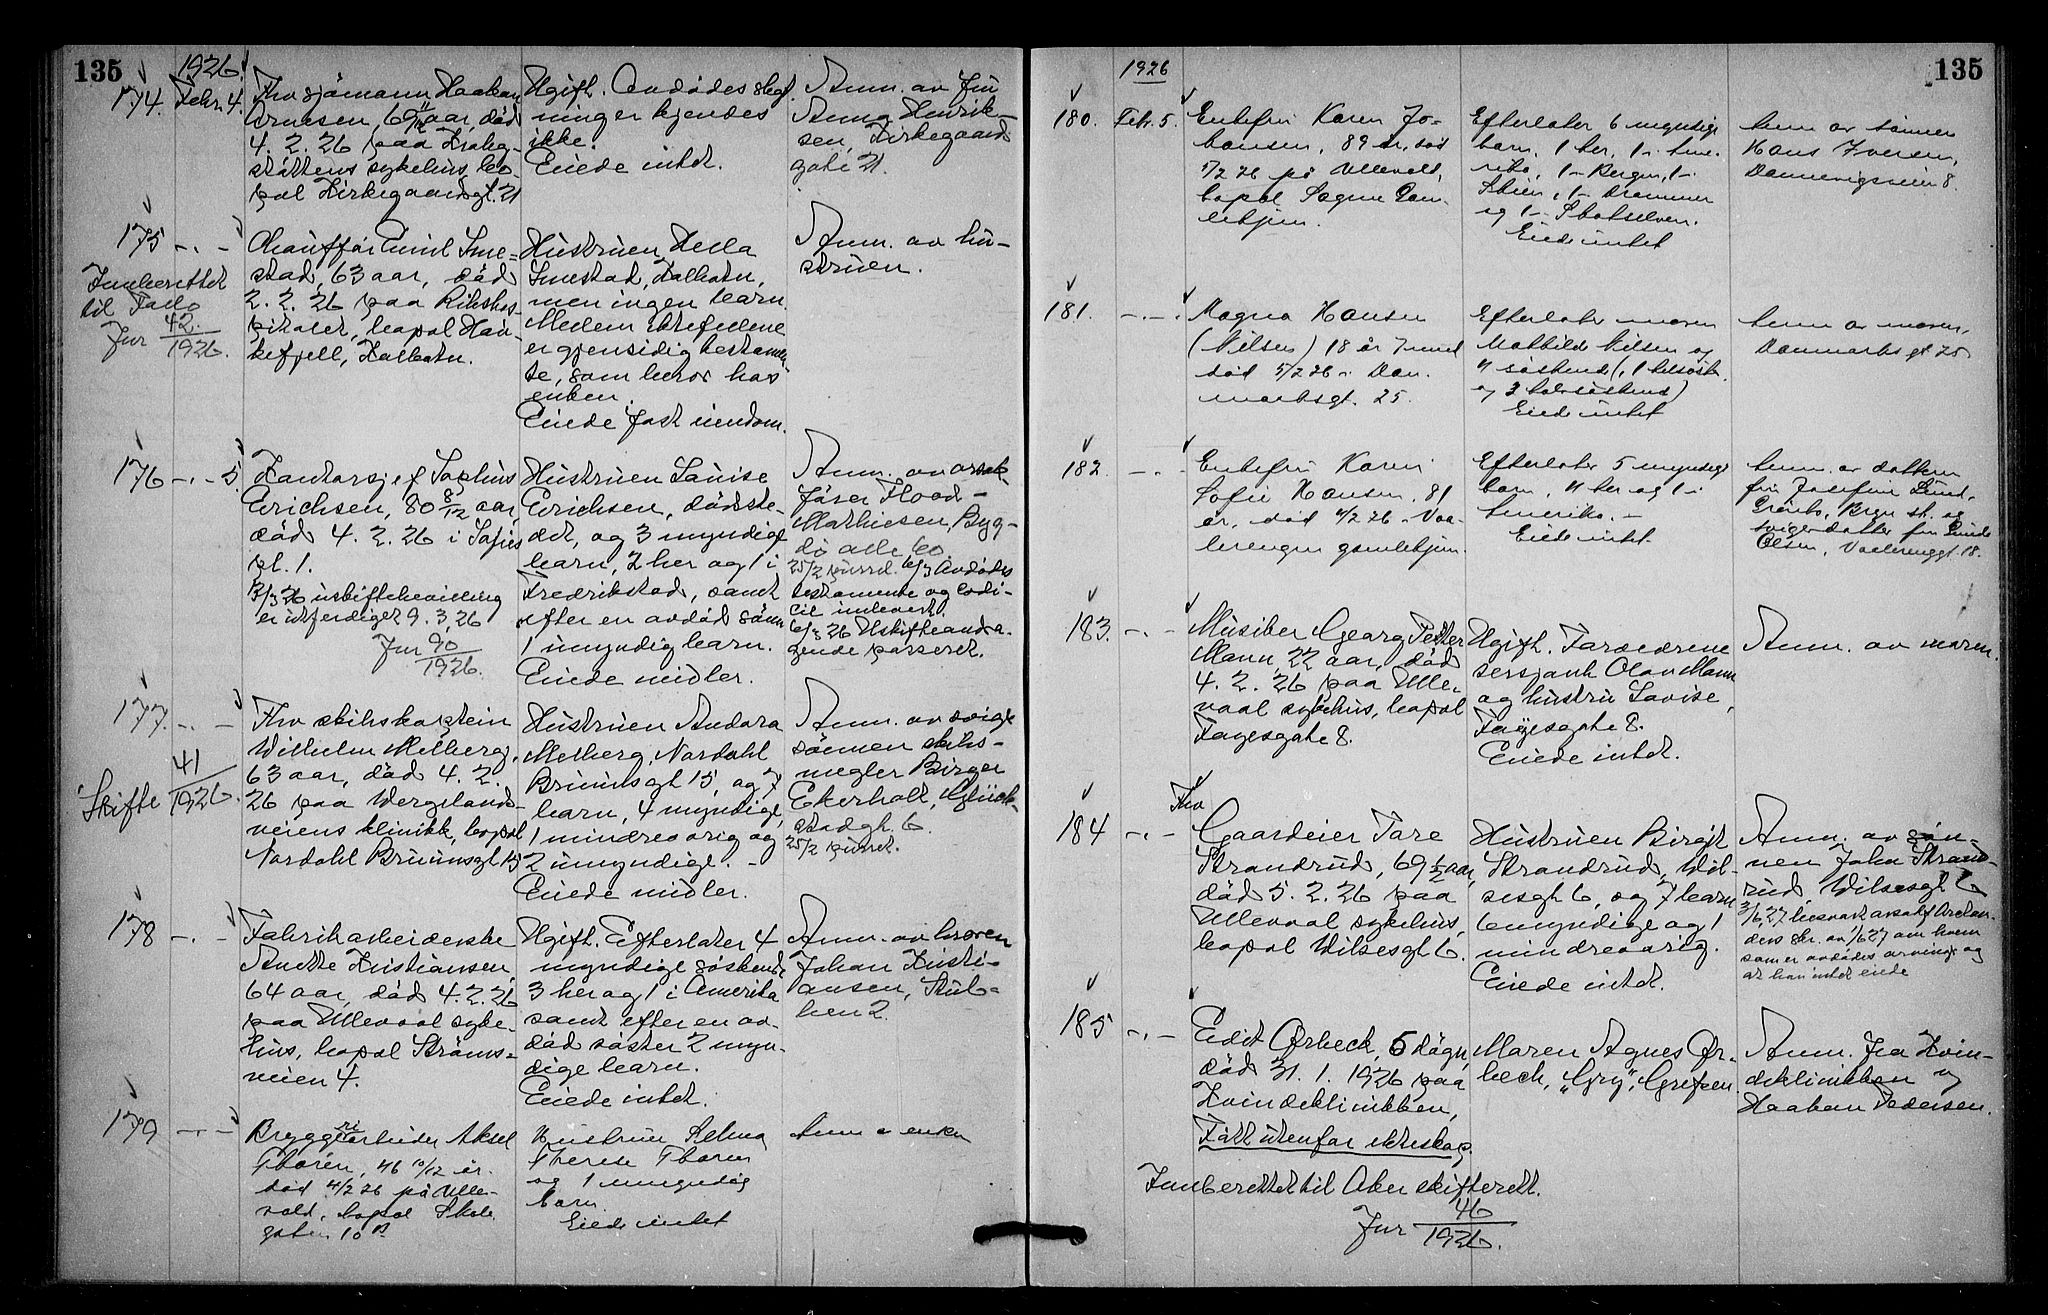 135
1926
174. Febr. 4.
Fhv sjømann Haakon
Arnesen, 69 11/12 aar, død
4. 2. 26 paa Krohg-
støttens sykehus, bo-
pæl Kirkegaardsgt. 21
Ugift. Avdødes slegt
ninger kjendes
ikke.
Eiede intet.
Anm. av Fru
Anna Henrik-
sen, Kirkegaards
gate 21.
175 -.-
Innberettet
til Follo
Jnr 42/1926.
Chauffør Emil Sme-
stad, 63 aar, død
2. 2. 26 paa Rikshos-
pitalet, bopæl Hau-
kefjell, Kolbotn.
Hustruen Hella
Smestad, Kolbotn,
men ingen barn.
Mellem ektefellene
er gjensidig testamen-
te, som beror hos
enken.
Eiede fast eiendom.
Anm. av hu-
struen.
176 -.- 5.
Kontorsjef Sophus
Erichsen, 80 8/12 aar
død 4. 2. 26 i Sofies
pl. 1.
3/3 26 uskiftebevilling
er utferdiget 9. 3. 26
Jnr 90/1926.
Hustruen Louise
Erichsen, dødsste-
det, og 3 myndige
barn, 2 her og 1 i
Fredrikstad, samt
efter en avdød sønn
1 umyndig barn.
Eiede midler.
Anm. av orsak-
fører Flood-
Mathiesen, Byg-
dø alle 60.
25/2 purret. 6/3 Avdødes
testamente og kodi-
cil innlevert.
6/3 26 Uskifteandra-
gende passeret.
177. -.-
Skifte 41/1926.
Fhv skibskaptein
Wilhelm Melberg,
63 aar, død 4. 2.
26 paa Wergelands-
veiens klinikk, bopæl
Nordahl Bruunsgt 15
Hustruen Andora
Melberg, Nordahl
Bruunsgt 15, og 7
barn, 4 myndige,
1 mindreaarig og
2 umyndige. -
Eiede midler.
Anm. av sviger
sønnen skibs-
megler Birger
Ekerholt, Glück-
stadgt. 6.
25/2 purret.
178 -.-
Fabrikarbeiderske
Anette Kristiansen,
64 aar, død 4. 2. 26
paa Ullevaal syke-
hus, bopæl Strøms-
veien 4.
Ugift. Efterlater 4
myndige søskende
3 her og 1 i Amerika
samt efter en av-
død søster 2 myn-
dige barn.
Eiede intet.
Anm. av broren
Johan Kristi-
ansen, Stub-
ben 2.
179 -.-
Bryggeriarbeider Aksel
Thorén, 46 10/12 år.
død 4/2 26 på Ulle-
vold, bopæl Skole
gaten 10 B
Hustruen Selma
Therese Thoren
og 1 umyndig
barn.
Eiede intet
Anm av enken
135
1926
180. Febr. 5.
Enkefru Karen Jo-
hansen, 89 år, død
5/2 26 på Ullevold,
bopæl Sagene Gam-
lehjem.
Efterlater 6 myndige
barn, 1 her, 1 i Ame-
rika, 1 - Bergen, 1 -
Skien, 1 - Drammen
og 1 - Skotselven.
Eiede intet
Anm av sønnen
Hans Iversen,
Dannevigsveien 8.
181. -.-
Magna Hansen
(Nilsen) 18 år 7 mnd
død 5/2 26 i Dan-
marksgt. 25.
Efterlater moren
Mathilde Nilsen og
4 søskende (1 helsøsk.
og 3 halvsøskende)
Eiede intet
Anm av moren,
Danmarks gt 25
182. -.-
Enkefru Karen
Sofie Hansen, 81
år, død 4/2 26 i Vaa-
lerengen gamlehjem.
Efterlater 5 myndige
barn, 4 her og 1 i
Amerika. -
Eiede intet.
Anm. av datteren
fru Josefine Lund,
Grænbo, Bryn st. og
svigerdatter fru
Olsen, Vaalerenggt. 18.
183. -.-
Musiker Georg Petter
Mann, 22 aar, død
4. 2. 26 paa Ulle-
vaal sykehus, bopæl
Fayesgate 8.
Ugift. Foreldrene
sersjant Olav Mann
og hustru Lovise,
Fayesgate 8.
Eiede intet.
Anm. av moren.
184 -.-
Fhv
Gaardeier Tore
Strandrud, 69 1/2 aar,
død 5. 2. 26 paa
Ullevaal sykehus,
bopæl Wilsesgt 6.
Hustruen Birgit
Strandrud, Wil-
sesgt 6, og 7 barn
6 myndige og 1
mindreaarig.
Eiede intet.
Anm. av søn-
nen John Strand-
rud, Wilsesgt 6
3/6 27 besvart
dens skr. av 1/6 27 om hvem
som er avdødes arvinger og
at han intet eiede
185 -.-
Edit Ørbeck, 5 døgn,
død 31. 1. 1926 paa
Kvindeklinikken,
Født utenfor ekteskap.
Innberettet til Aker skifterett.
Jnr 46/1926.
Moren Agnes Ør-
bech, "Gry", Grefsen
Anm. fra Kvin-
deklinikken og
Haakon Pedersen.